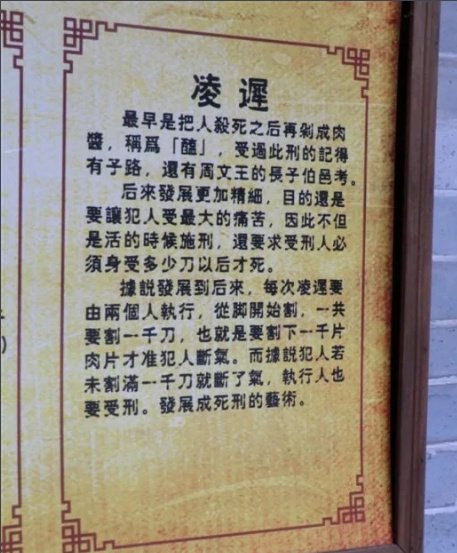 凌遲
最早是把人殺死之后再剁成肉
醬，稱爲「醢」，受過此刑的記得
有子路，還有周文王的長子伯邑考。
后來發展更加精細，目的還是
要讓犯人受最大的痛苦，因此不但
是活的時候施刑，還要求受刑人必
須身受多少刀以后才死。
據説發展到后來，每次凌遲要
由兩個人執行，從脚開始割，一共
要割一千刀，也就是要割下一千片
肉片才准犯人斷氣。而據説犯人若
未割滿一千刀就斷了氣，執行人也
要受刑。發展成死刑的藝術。
）